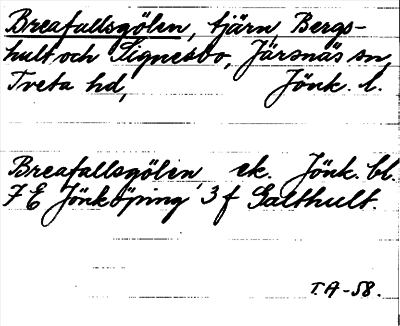 Breafallsgölen, tjärn, Bergs-
hult och Signesbo, Järsnäs sn,
Tveta hd, Jönk. l.
Breafallsgölen ek. Jönk. bl.
7 E Jönköping 3 f Galthult.
T.A-58.